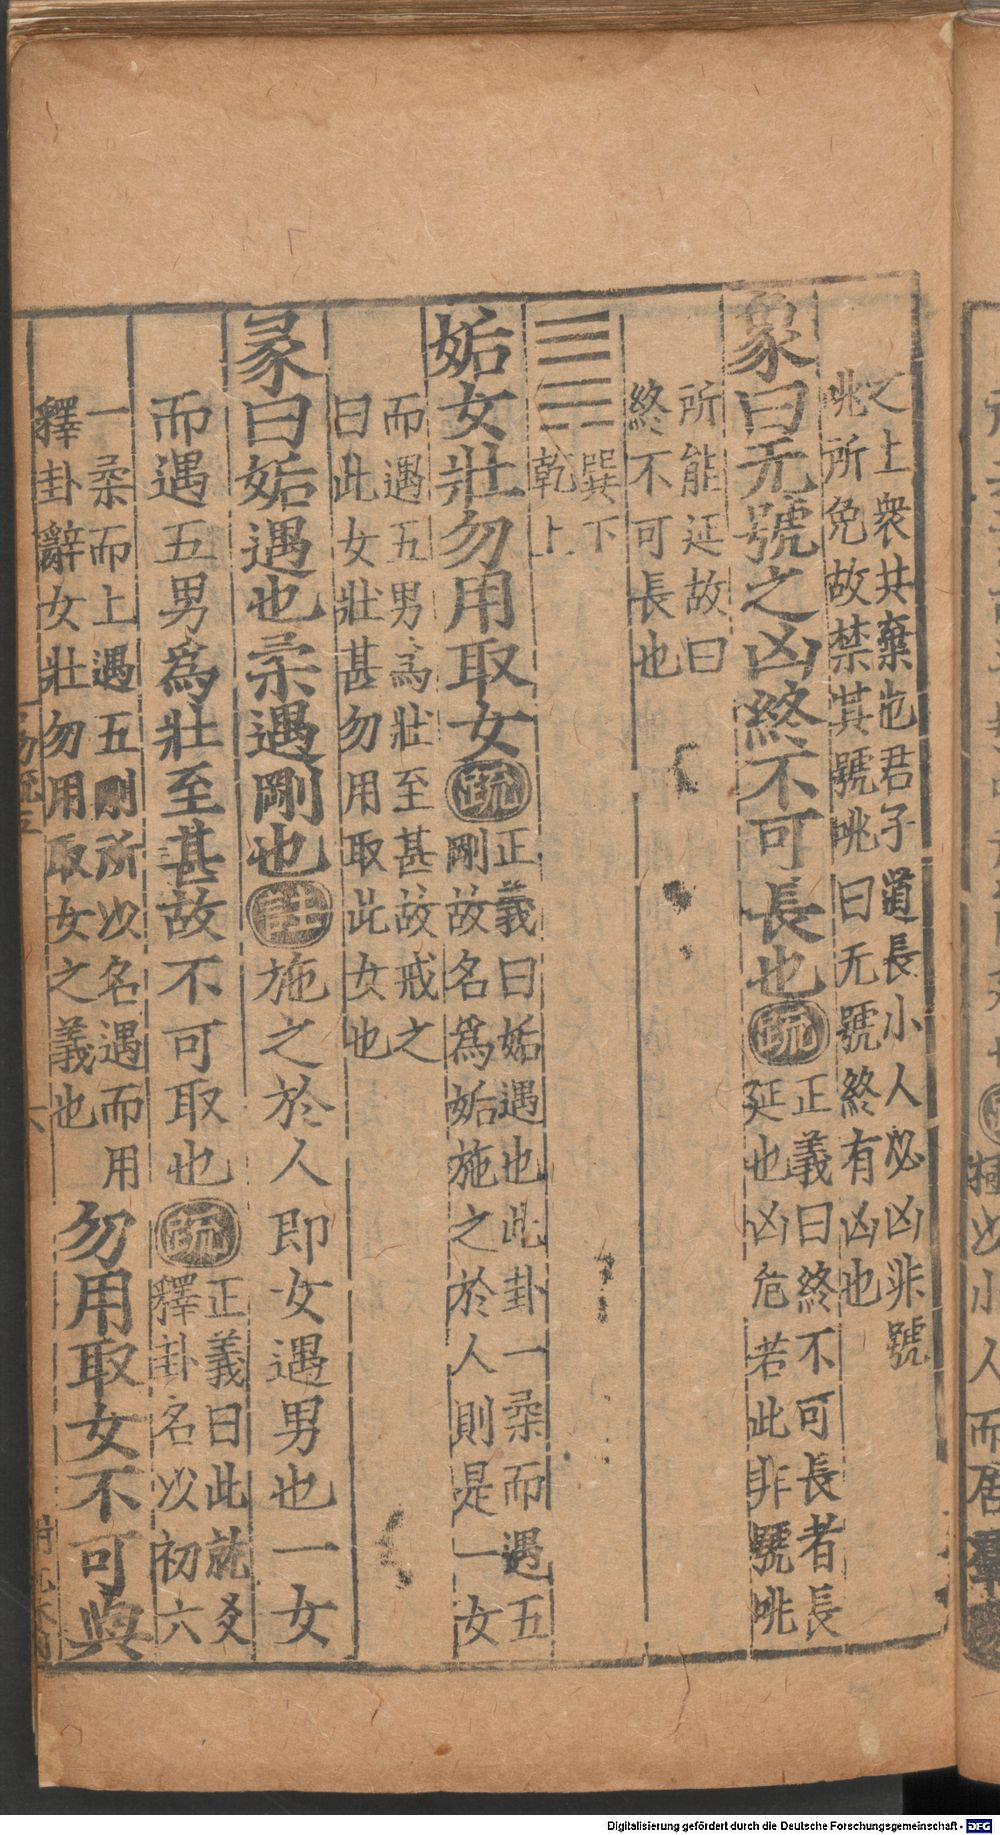 之上衆共棄也君子道長小人必凶非號
咷所免故禁其號咷曰无號終有凶也
象曰无號之凶終不可長也疏
正義曰終不可長者長
延也凶危若此非號咷
所能延故曰
終不可長也
巽下
乾上
姤女壯勿用取女疏
正義曰姤遇也此卦一柔而遇五
剛故名爲姤施之於人則是一女
而遇五男爲壯至甚故戒之
曰此女壯甚勿用取此女也
彖曰姤遇也柔遇剛也註施之於人即女遇男也一女
而遇五男爲壯至甚故不可取也疏
正義曰此就爻
釋卦名以初六
一柔而上遇五剛所以名遇而用
釋卦辭女壯勿用取女之義也
勿用取女不可與
六
Digitalisierung gefördert durch die Deutsche Forschungsgemeinschaft - DFG